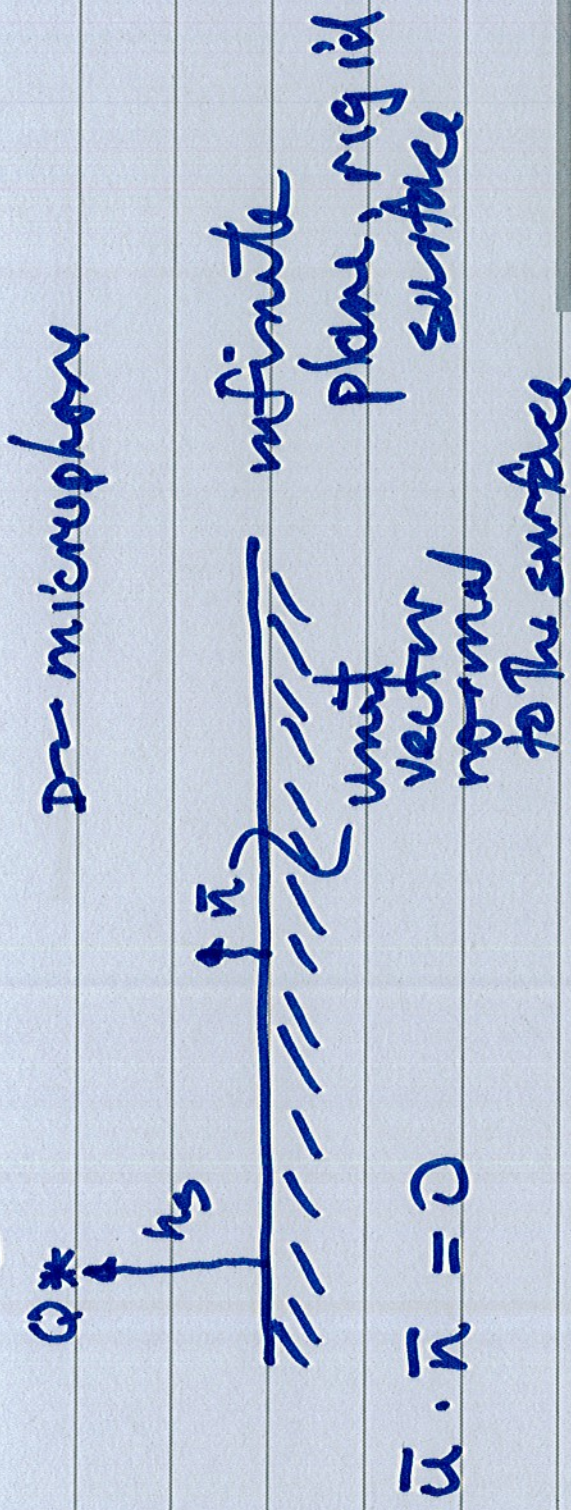 Q *
D~ microphone
hs
n̄
infinite
plane, rigid
surface
unit
vector
normal
to the surface
ū · n̄ = 0